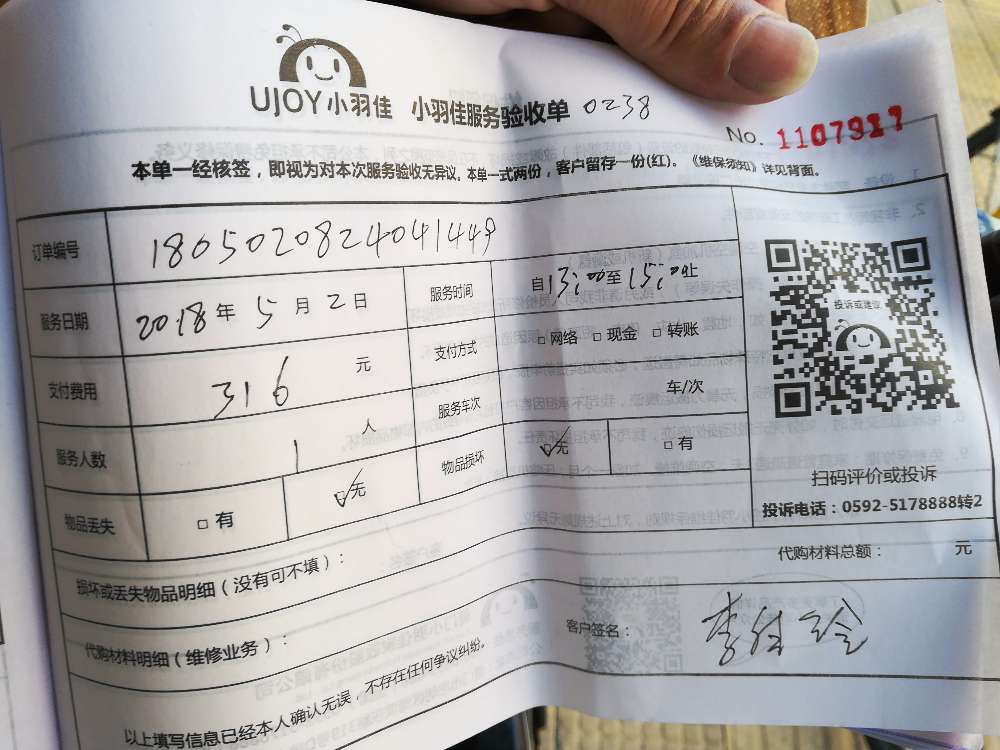 UJOY小羽佳 小羽佳服务验收单 0238
No. 1107917
本单一经核签，即视为对本次服务验收无异议。本单一式两份，客户留存一份(红)。《维保须知》详见背面。
订单编号 1805020824041449
服务日期 2018年5月2日 服务时间 自13:00至15:00止
支付费用 316 元 支付方式 □网络 □现金 □转账
服务人数 1 人 服务车次 车/次
物品丢失 □有 ☑无 物品损坏 ☑无 □有
投诉或建议
扫码评价或投诉
投诉电话：0592-5178888转2
损坏或丢失物品明细（没有可不填）：
代购材料总额： 元
代购材料明细（维修业务）：
客户签名：
以上填写信息已经本人确认无误，不存在任何争议纠纷。